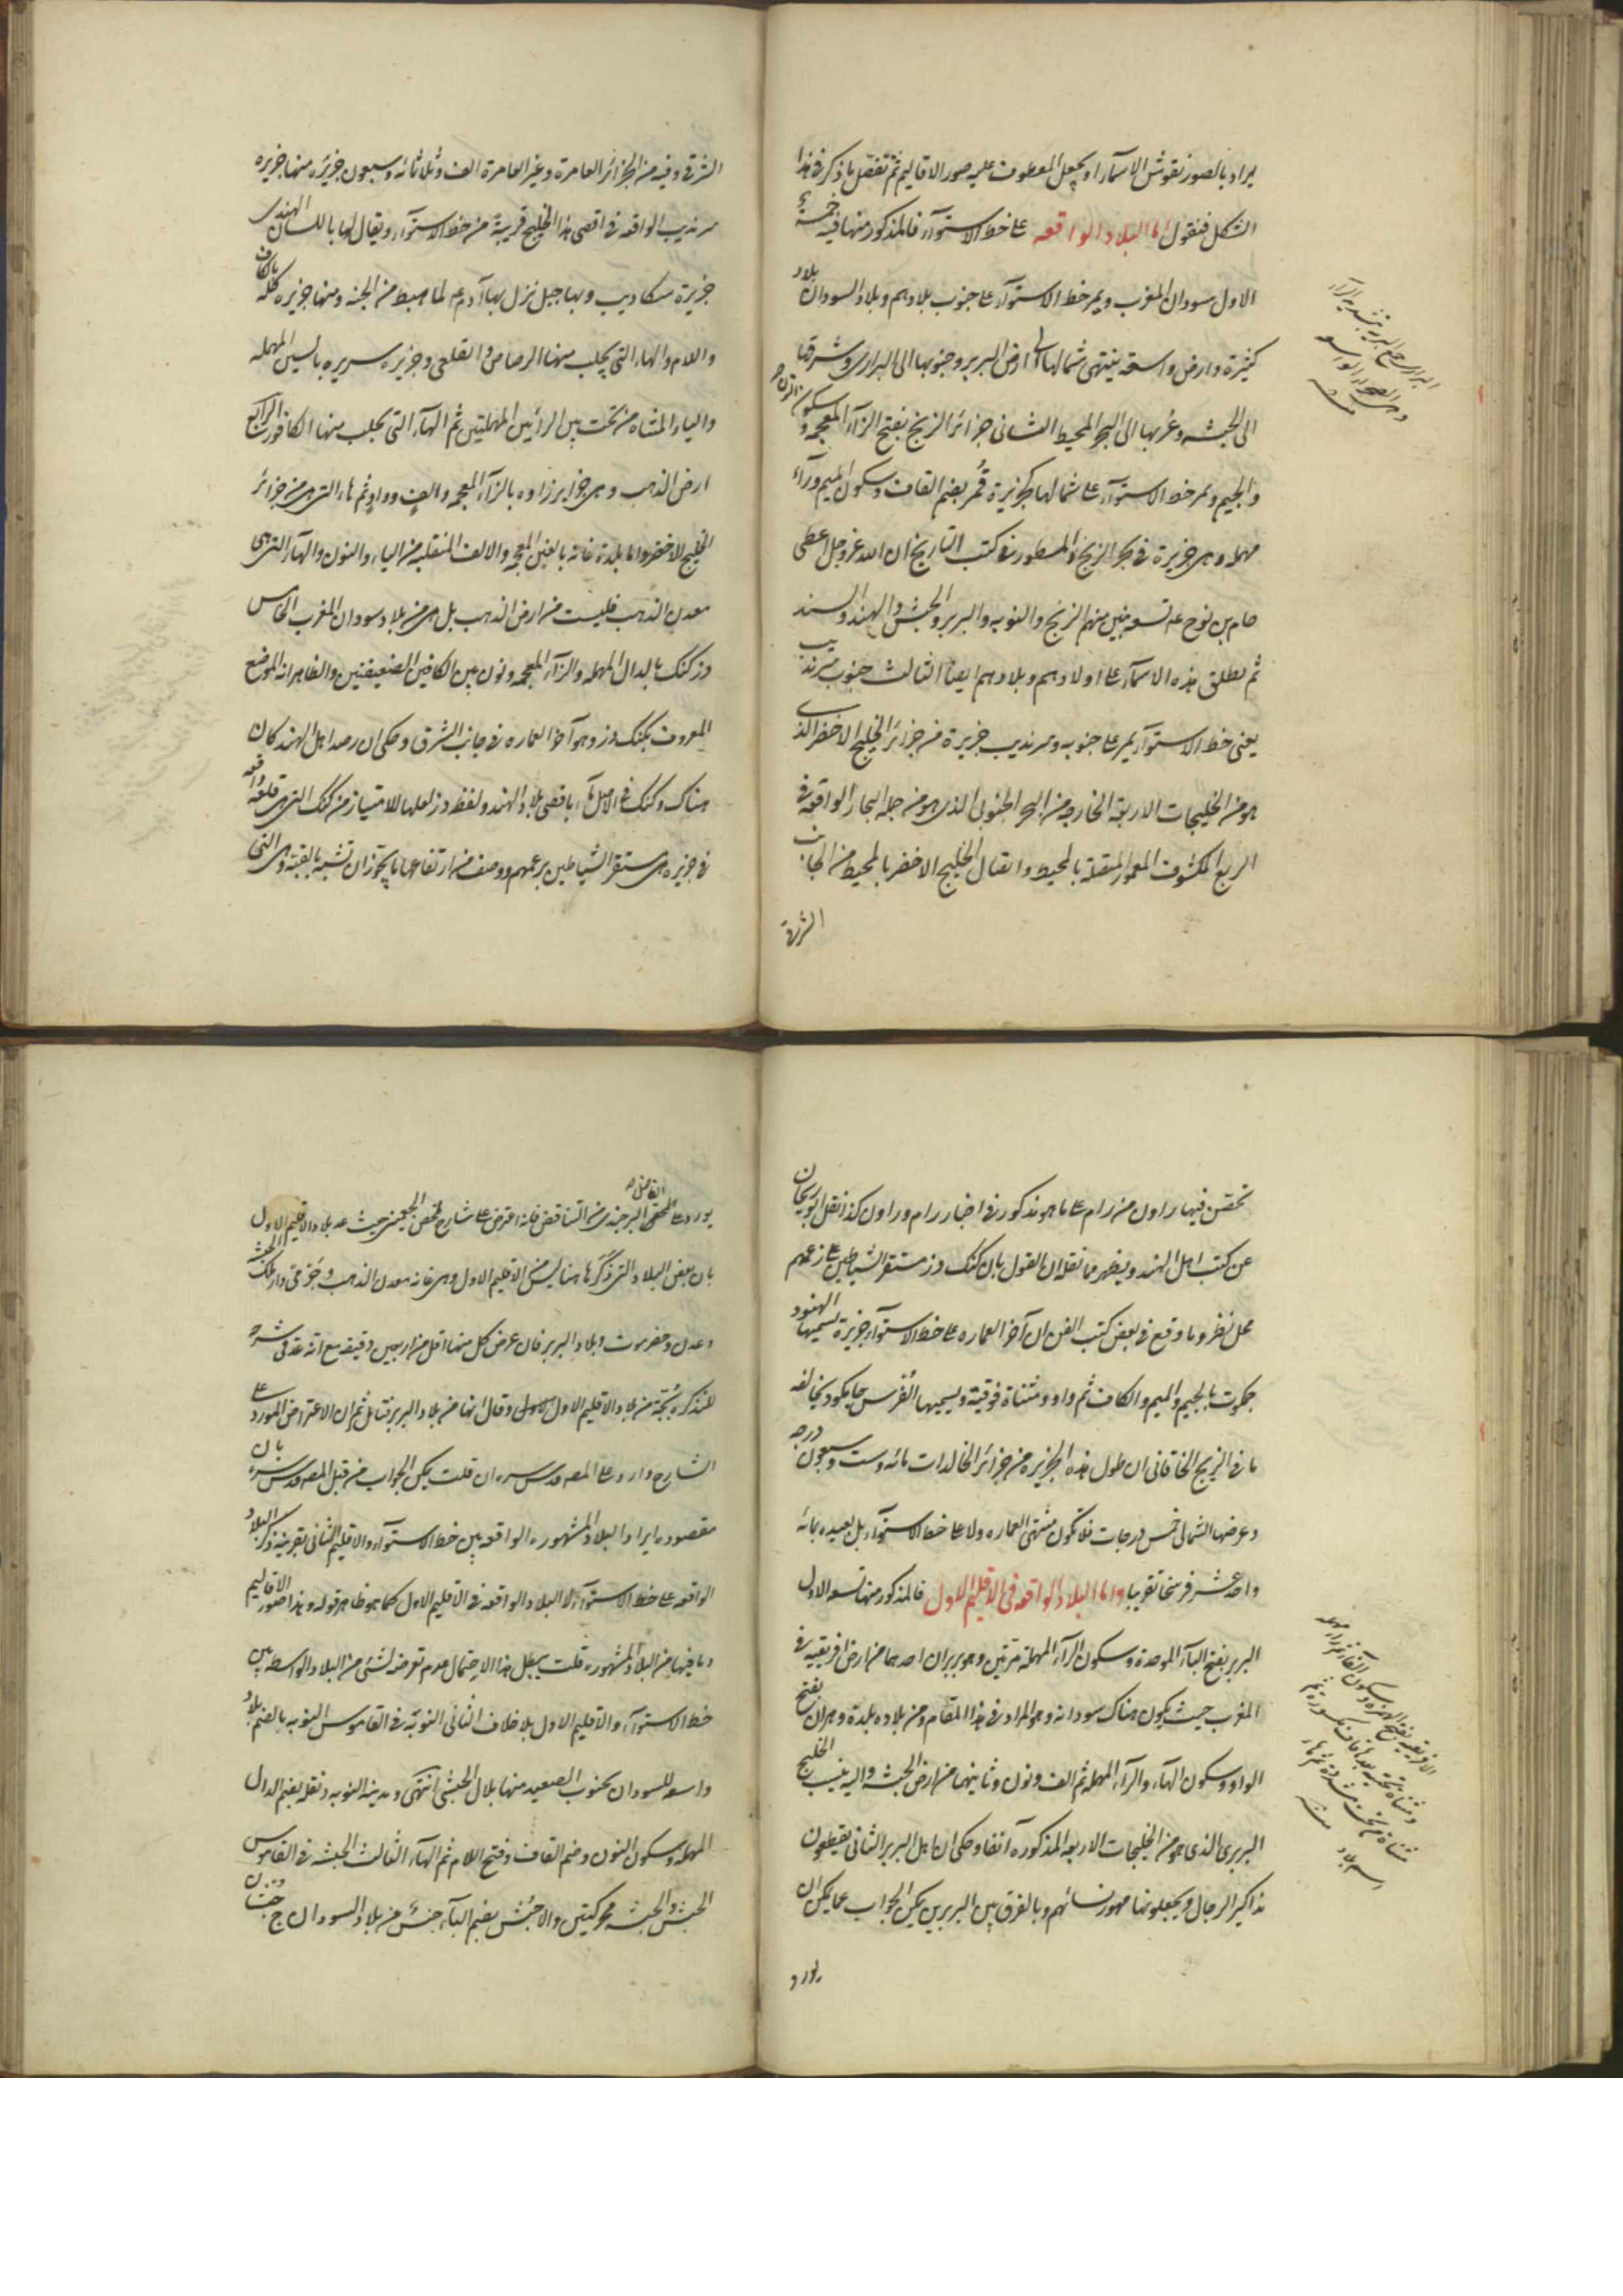 يراد بالصور نقوش الاسماء او يجعل المعطوف عليه صور الاقاليم ثم تفصل ما ذكر فى هذا
الشكل فنقول اما البلاد الواقعه على خط الاستوآء فالمذكور منها فيه خمسة
الاول سودان المغرب ويمر خط الاستوآء على جنوب بلادهم وبلاد السودان بلاد
كثيرة وارض واسعة ينتهى شمالها الى ارض البربر وجنوبها الى البرارى وشرقها
الى الحبشه وغربها الى البحر المحيط الثانى جزائر الزنج بفتح الزآء المعجمه وسكون النون
والجيم ويمر خط الاستوآء على شمالها كجزيرة قُمر بضم القاف وسكون الميم ورآء
مهمله وهى جزيرة فى بحر الزنج والمسطور فى كتب التاريخ ان الله عز وجل اعطى
حام بن نوح عه تسعة بنين منهم الزنج والنوبه والبربر والحبش والهند والسند
ثم يطلق هذه الاسمآء على اولادهم وبلادهم ايضا الثالث جنوب سرنديب
يعنى خط الاستوآء يمر على جنوبه وسرنديب جزيرة من جزائر الخليج الاخضر الذى
هو من الخليجات الاربعة الخارجة من البحر الجنوبى الذى هو من جمله البحار الواقعة فى
الربع المكشوف المعمور المتصلة بالمحيط واتصال الخليج الاخضر بالمحيط من الجانب
الشرقى
البرارى جمع البرية بتشديد الرآء
وهى الصحراء الواسعة
منه
الشرقى وفيه من الجزائر العامرة وغير العامرة الف وثلاثمائه وسبعون جزيرة منها جزيره
سرنديب الواقعه فى اقصى هذا الخليج قريبة من خط الاستوآء ويقال لها باللسان الهندى
جزيرة سكاديب وبها جبل نزل بها آدم عه لما هبط من الجنه ومنها جزيره كله بالكاف
واللام والهاء التى يجلب منها الرصاص القلعى وجزيره سريره بالسين المهمله
والياء المثناه من تحت بين الرائين المهملتين ثم الهآء التى يجلب منها الكافور الرابع
ارض الذهب وهى جزاير زاوه بالزآء المعجمه والف وواو ثم هاء التى هى من جزائر
الخليج الاخضر واما بلدة غانة بالغين المعجمه والالف المنقلبه من الياء والنون والهآء التى هى
معدن الذهب فليست من ارض الذهب بل هى من بلاد سودان المغرب الخامس
دزكنك بالدال المهمله والزآء المعجمه ونون بين الكافين الضعيفتين والظاهر انه الموضع
المعروف بكنك دز وهو آخر العماره فى جانب الشرق وحكى ان رصد اهل الهند كان
هناك وكنك فى الاصل باقصى بلاد الهند ولفظ دز لعلها للامتياز من كنك التى هى قلعه واقعه
فى جزيره هى مستقر الشياطين بزعمهم ووصف من ارتفاعها ما يجوز ان تشبه بالقبة وهى التى
تحصن فيها راون من رام على ما هو مذكور فى اخبار رام وراون كذا نقل ابو ريحان
عن كتب اهل الهند ويظهر مما نقله ان القول بان كنك دز مستقر الشياطين على زعمهم
محل نظر وما وقع فى بعض كتب الفن ان آخر العماره على خط الاستوآء جزيرة تسميها الهنود
جمكوت بالجيم والميم والكاف ثم واو ومثناة فوقية ويسميها الفرس جايكود يخالفه
ما فى الزيج الخاقانى ان طول هذه الجزيره من جزائر الخالدات مائه وست وسبعون درجه
وعرضها الشمالى خمس درجات فلا تكون منتهى العماره ولا على خط الاستوآء بل بعيده بمائه
واحد عشر فرسخا تقريبا واما البلاد الواقعه فى الاقليم الاول فالمذكور منها تسعه الاول
البربر بفتح البآء الموحدة وسكون الرآء المهملة مرتين وهو بربران احدهما من ارض افريقيه فى
المغرب حيث يكون هناك سودانه وهو المراد فى هذا المقام ومن بلاده بلدة وهران بفتح
الواو وسكون الهآء والرآء المهمله ثم الف ونون وثانيهما من ارض الحبشه واليه ينسب الخليج
البربرى الذى هو من الخليجات الاربعه المذكوره آنفا وحكى ان اهل البربر الثانى يقطعون
مذاكير الرجال ويجعلونها مهور نسائهم وبالفرق بين البربرين يمكن الجواب عما يمكن ان
يورد
يورد على المحقق الفاضل البرجندى من التناقض فانه اعترض على شارح ملخص الجغمينى حيث عد بلاد الاقليم الاول
بان بعض البلاد التى ذكرها هنا ليس من الاقليم الاول وهى غانه معدن الذهب وجرمى دار ملك الحبشه
وعدن وحضرموت وبلاد البربر فان عرض كل منها اقل من اربعين دقيقه مع انه عد فى شرحه
الشارح وارد على المصه قدس سره ان قلت يمكن الجواب من قبل المصه قدس سره بان
مقصوده ايراد البلاد المشهوره الواقعه بين خط الاستوآء والاقليم الثانى بقرينة ذكر البلاد
الواقعه على خط الاستوآء لا البلاد الواقعه فى الاقليم الاول كما هو ظاهر قوله وهذا صور الاقاليم
وما فيها من البلاد المشهوره قلت يبطل هذا الاحتمال عدم تعرضه لشئ من البلاد الواسطه بين
خط الاستوآء والاقليم الاول بلا خلاف الثانى النوبة فى القاموس النوبه بالضم بلاد
واسعه للسودان بجنوب الصعيد منها بلال الحبشى انتهى ومدينه النوبه دنقله بضم الدال
المهمله وسكون النون وضم القاف وفتح اللام ثم الهآء الثالث الحبشه فى القاموس
الحبش والحبشه محركتين والاحبُش بضم البآء جنس من بلاد السودان ج حبشان